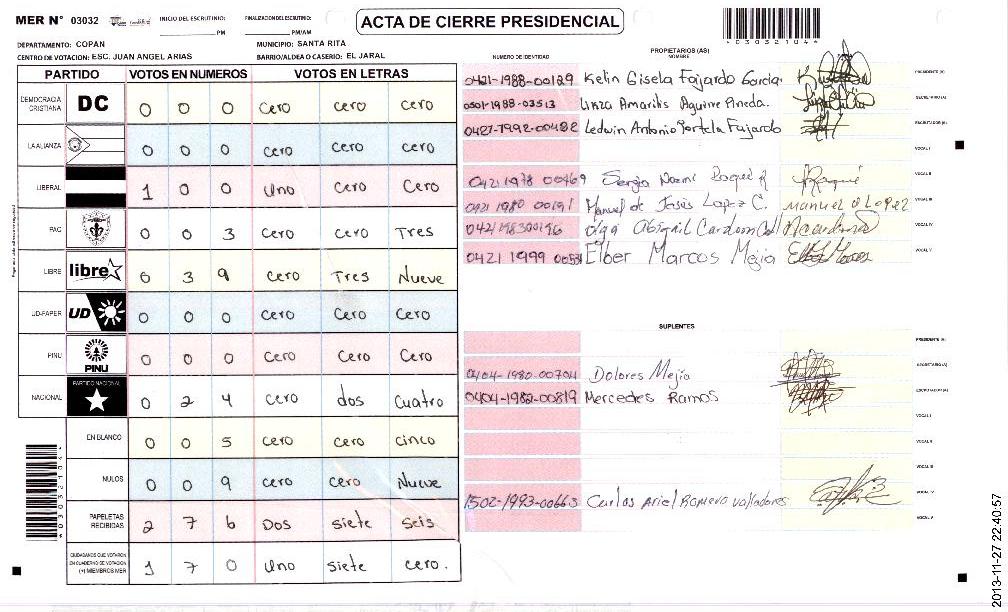 MER N° 03032 INICIO DEL ESCRUTINIO: ____PM FINALIZACION DEL ESCRUTINIO: ____PM/AM
ACTA DE CIERRE PRESIDENCIAL
*03032104*
DEPARTAMENTO: COPAN MUNICIPIO: SANTA RITA
CENTRO DE VOTACION: ESC. JUAN ANGEL ARIAS BARRIO/ALDEA O CASERIO: EL JARAL
PARTIDO VOTOS EN NUMEROS VOTOS EN LETRAS
DEMOCRACIA CRISTIANA DC 0 0 0 Cero cero Cero
LA ALIANZA 0 0 0 cero Cero Cero
LIBERAL 1 0 0 Uno Cero Cero
PAC 0 0 3 Cero Cero Tres
LIBRE libre 0 3 9 Cero Tres Nueve
UD-FAPER UD 0 0 0 Cero Cero Cero
PINU PINU 0 0 0 Cero Cero Cero
NACIONAL PARTIDO NACIONAL 0 2 4 cero dos Cuatro
EN BLANCO 0 0 5 cero cero cinco
NULOS 0 0 9 cero cero Nueve
PAPELETAS RECIBIDAS 2 7 6 Dos siete Seis
CIUDADANOS QUE VOTARON EN CUADERNO DE VOTACION (+) MIEMBROS MER 1 7 0 Uno siete cero.
*03032104*
NUMERO DE IDENTIDAD PROPIETARIOS (AS) NOMBRE
0421-1988-00129 Kelin Gisela Fajardo Garcia. PRESIDENTE (A)
0501-1988-03513 Linza Amarilis Aguirre Pineda. SECRETARIO (A)
0427-1992-00482 Ledwin Antonio Portela Fajardo ESCRUTADOR (A)
VOCAL I
0421 1978 00469 Sergio Noemi Roque R VOCAL II
0421 1980 00191 Manuel de Jesús Lopez C. manuel d Lopez VOCAL III
0421198300196 Olga Abigail Cardona VOCAL IV
0421 1999 Elber Marcos Mejia VOCAL V
SUPLENTES
PRESIDENTE (A)
0404-1980-00704 Dolores Mejia SECRETARIO (A)
0404-1982-00819 Mercedes Ramos ESCRUTADOR (A)
VOCAL I
VOCAL II
VOCAL III
1502-1993-00663 Carlos Ariel Romero valladares VOCAL IV
VOCAL V
2013-11-27 22:40:57